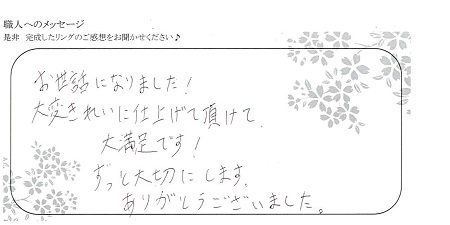 職人へのメッセージ
是非 完成したリングのご感想をお聞かせください♪
お世話になりました!
大変きれいに仕上げて頂けて、
大満足です!
ずっと大切にします。
ありがとうございました。